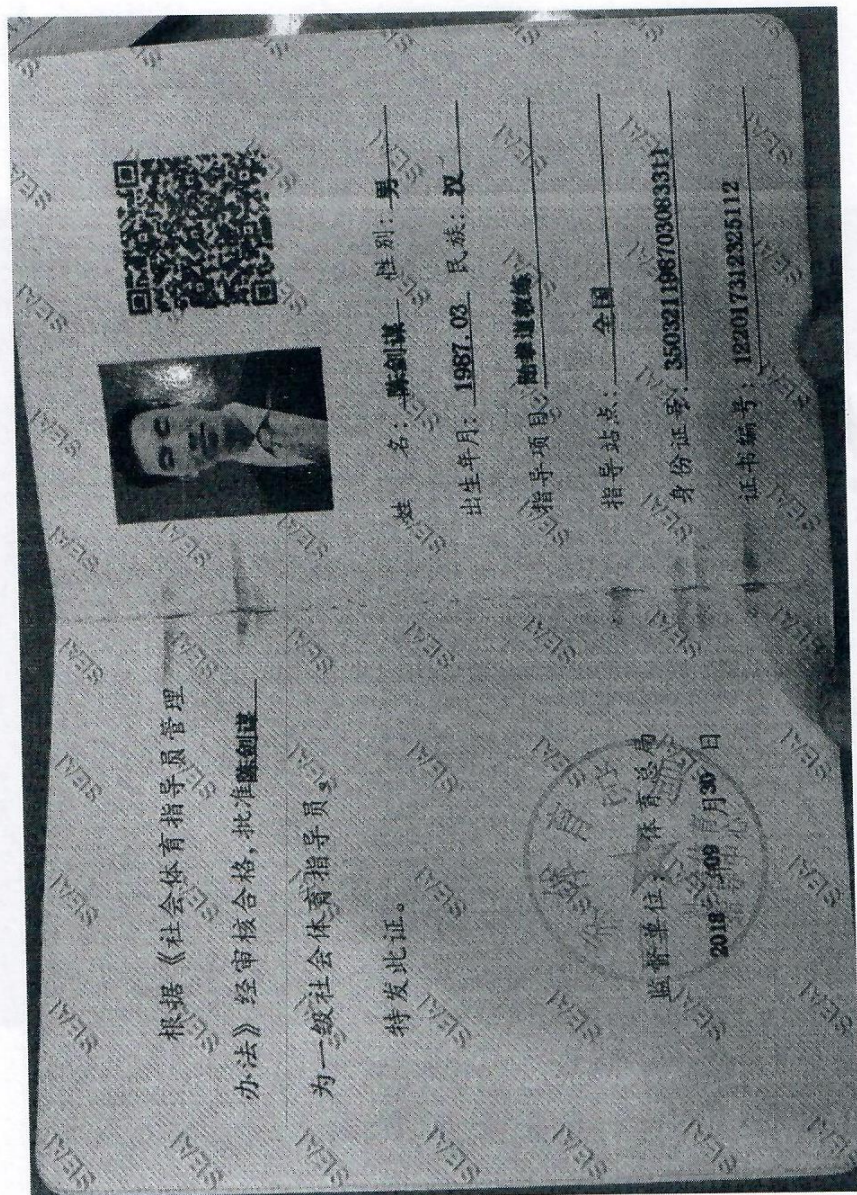 根据《社会体育指导员管理
办法》经审核合格,批准陈剑谋
为一级社会体育指导员。
特发此证。
监督单位: 体育总局
2018年09月30日
姓 名: 陈剑谋 性别: 男
出生年月: 1987.03 民族: 汉
指导项目: 跆拳道教练
指导站点: 全国
身份证号: 350321198703083311
证书编号: 122017312325112